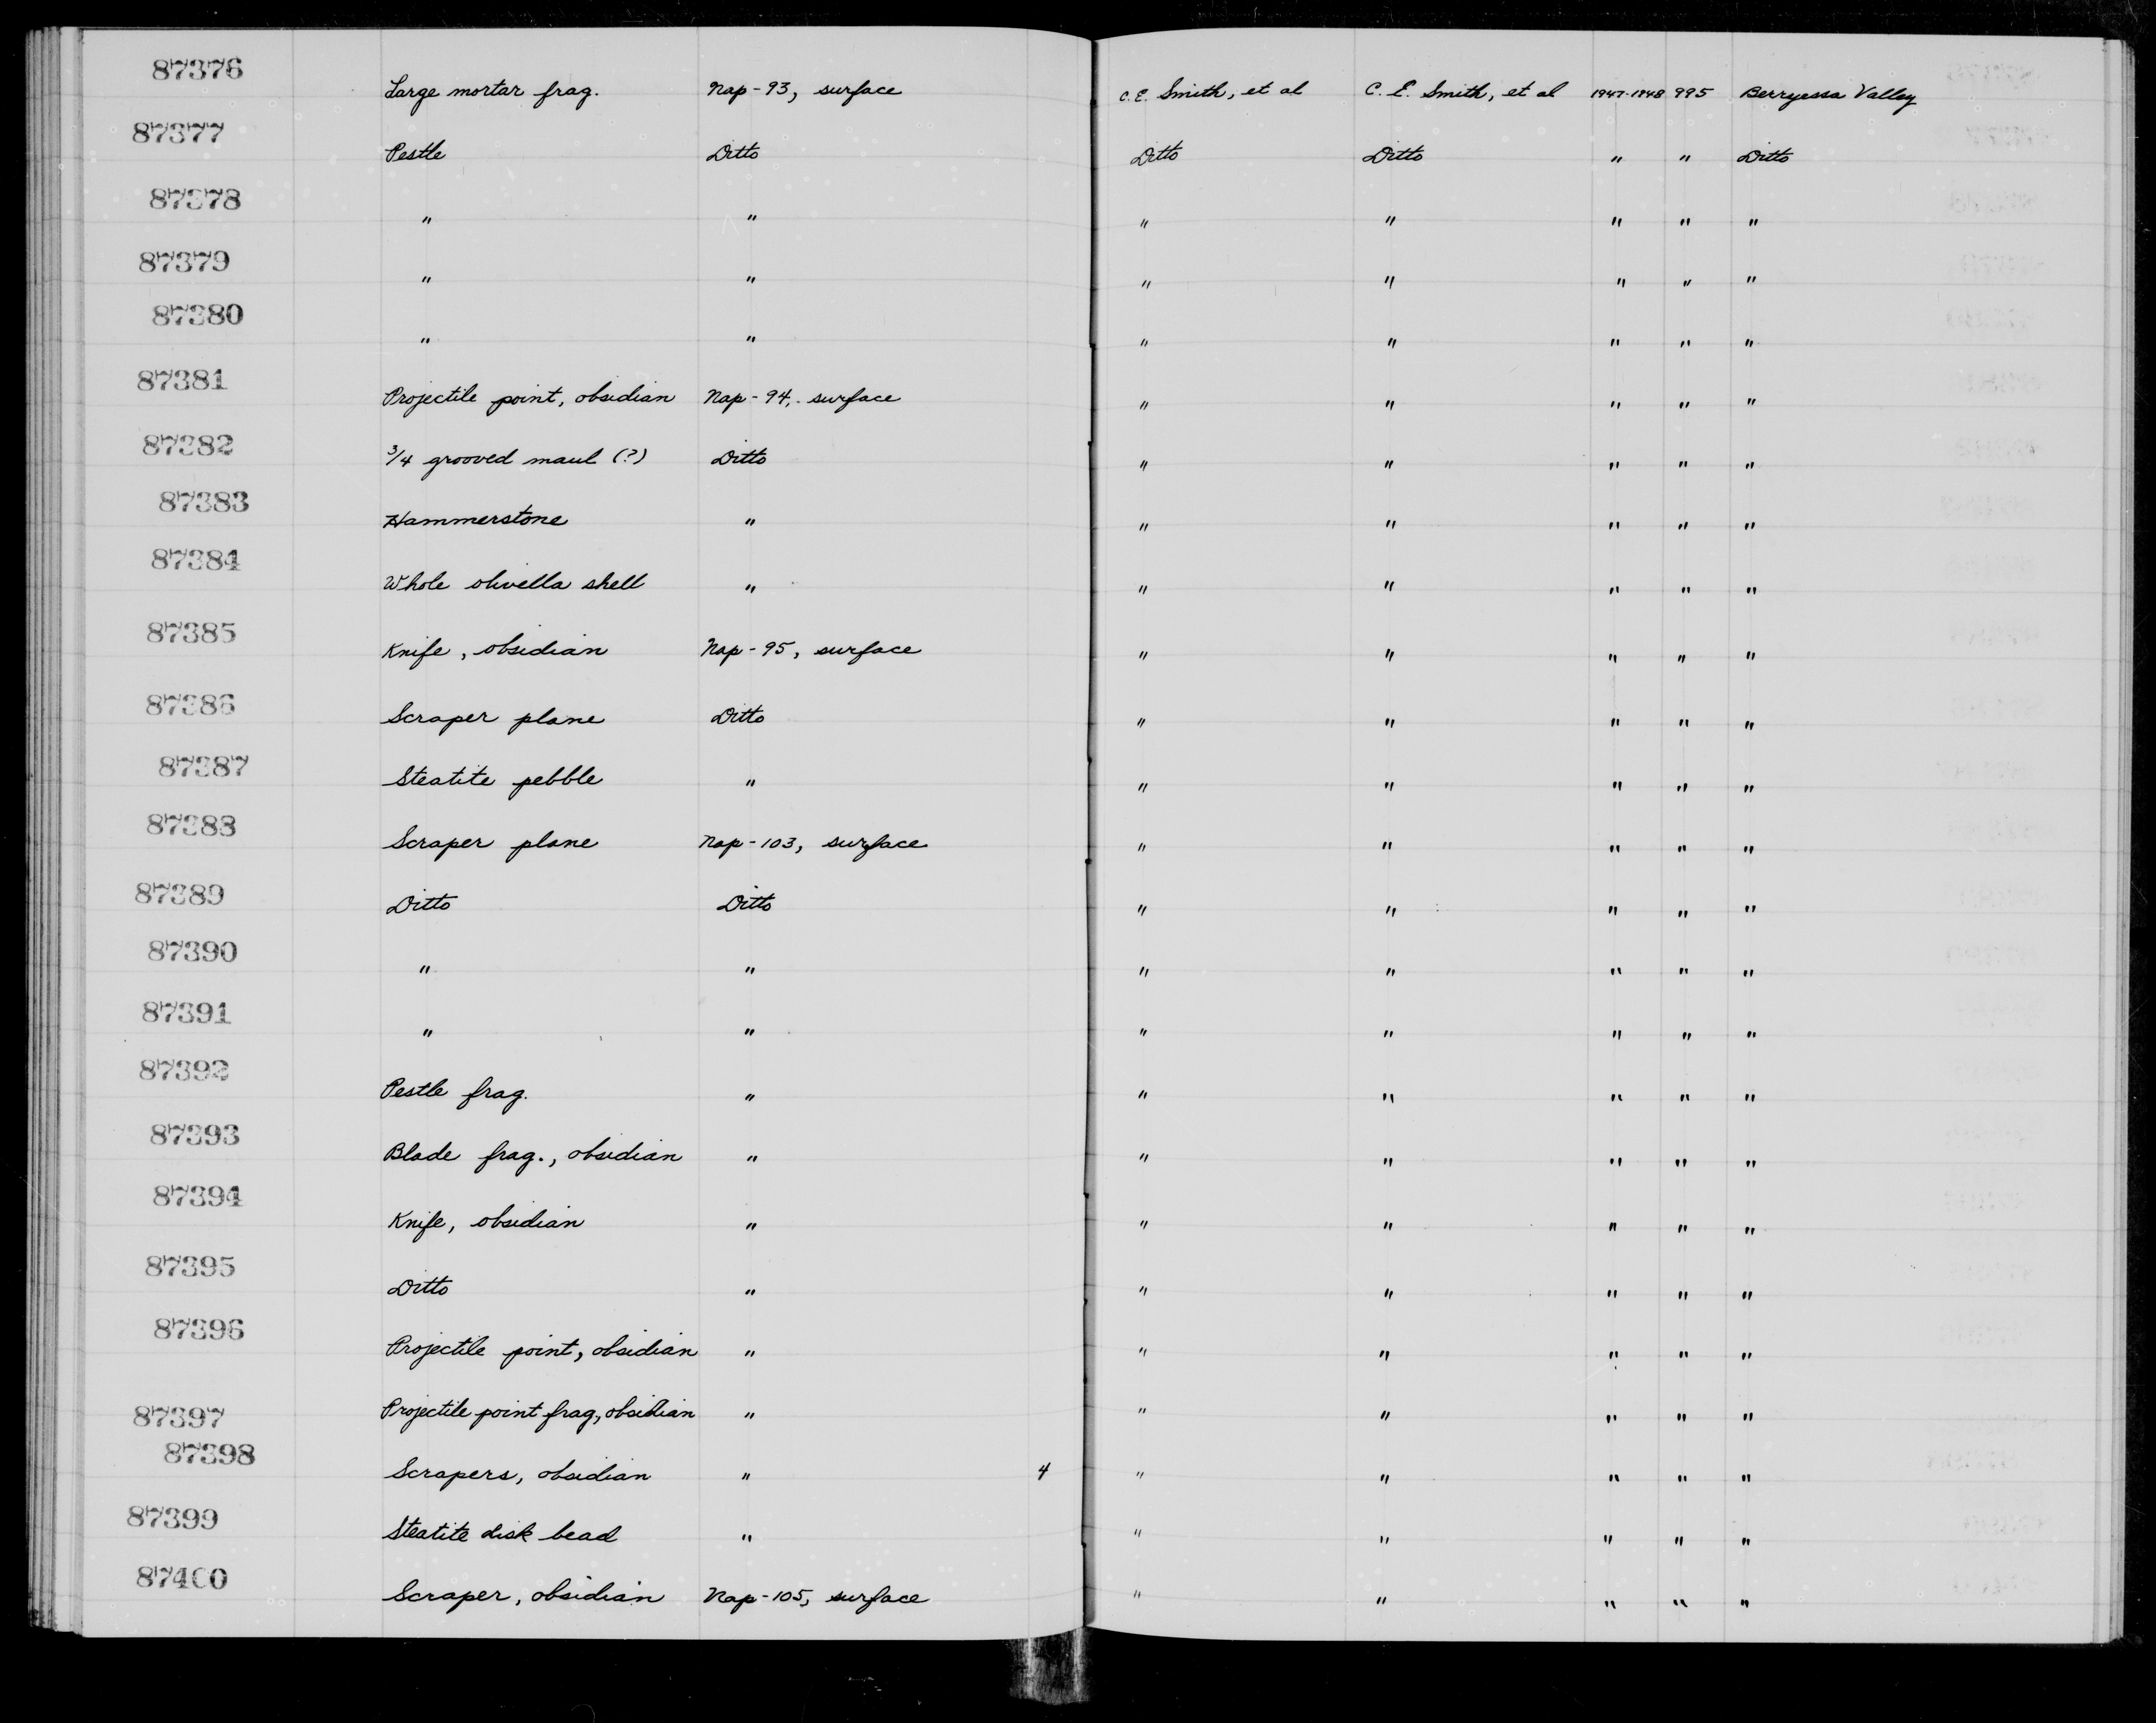 87376 Large mortar frag. Nap-93, surface C.E. Smith, et al C. E. Smith, et al 1947-1948 995 Berryessa Valley
87377 Pestle Ditto Ditto Ditto " " Ditto
87378 " " " " " " "
87379 " " " " " " "
87380 " " " " " " "
87381 Projectile point, obsidian Nap-94, surface " " " " "
87382 3/4 grooved maul (?) Ditto " " " " "
87383 Hammerstone " " " " " "
87384 Whole olivella shell " " " " " "
87385 Knife, obsidian Nap-95, surface " " " " "
87386 Scraper plane Ditto " " " " "
87387 Steatite pebble " " " " " "
87388 Scraper plane Nap-103, surface " " " " "
87389 Ditto Ditto " " " " "
87390 " " " " " " "
87391 " " " " " " "
87392 Pestle frag. " " " " " "
87393 Blade frag., obsidian " " " " " "
87394 Knife, obsidian " " " " " "
87395 Ditto " " " " " "
87396 Projectile point, obsidian " " " " " "
87397 Projectile point frag., obsidian " " " " " "
87398 Scrapers, obsidian " 4 " " " " "
87399 Steatite disk bead " " " " " "
87400 Scraper, obsidian Nap-105, surface " " " " "